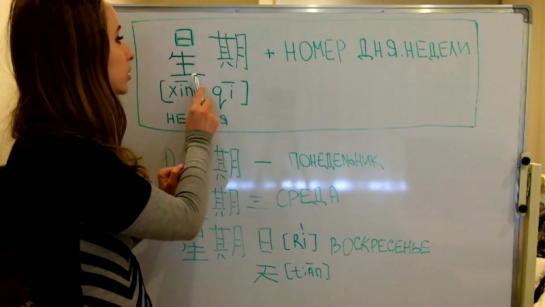 星期 + НОМЕР ДНЯ НЕДЕЛИ
[xīn qī]
期 一 ПОНЕДЕЛЬНИК
期 三 СРЕДА
星期 日 [Rì] ВОСКРЕСЕНЬЕ
天 [tiān]